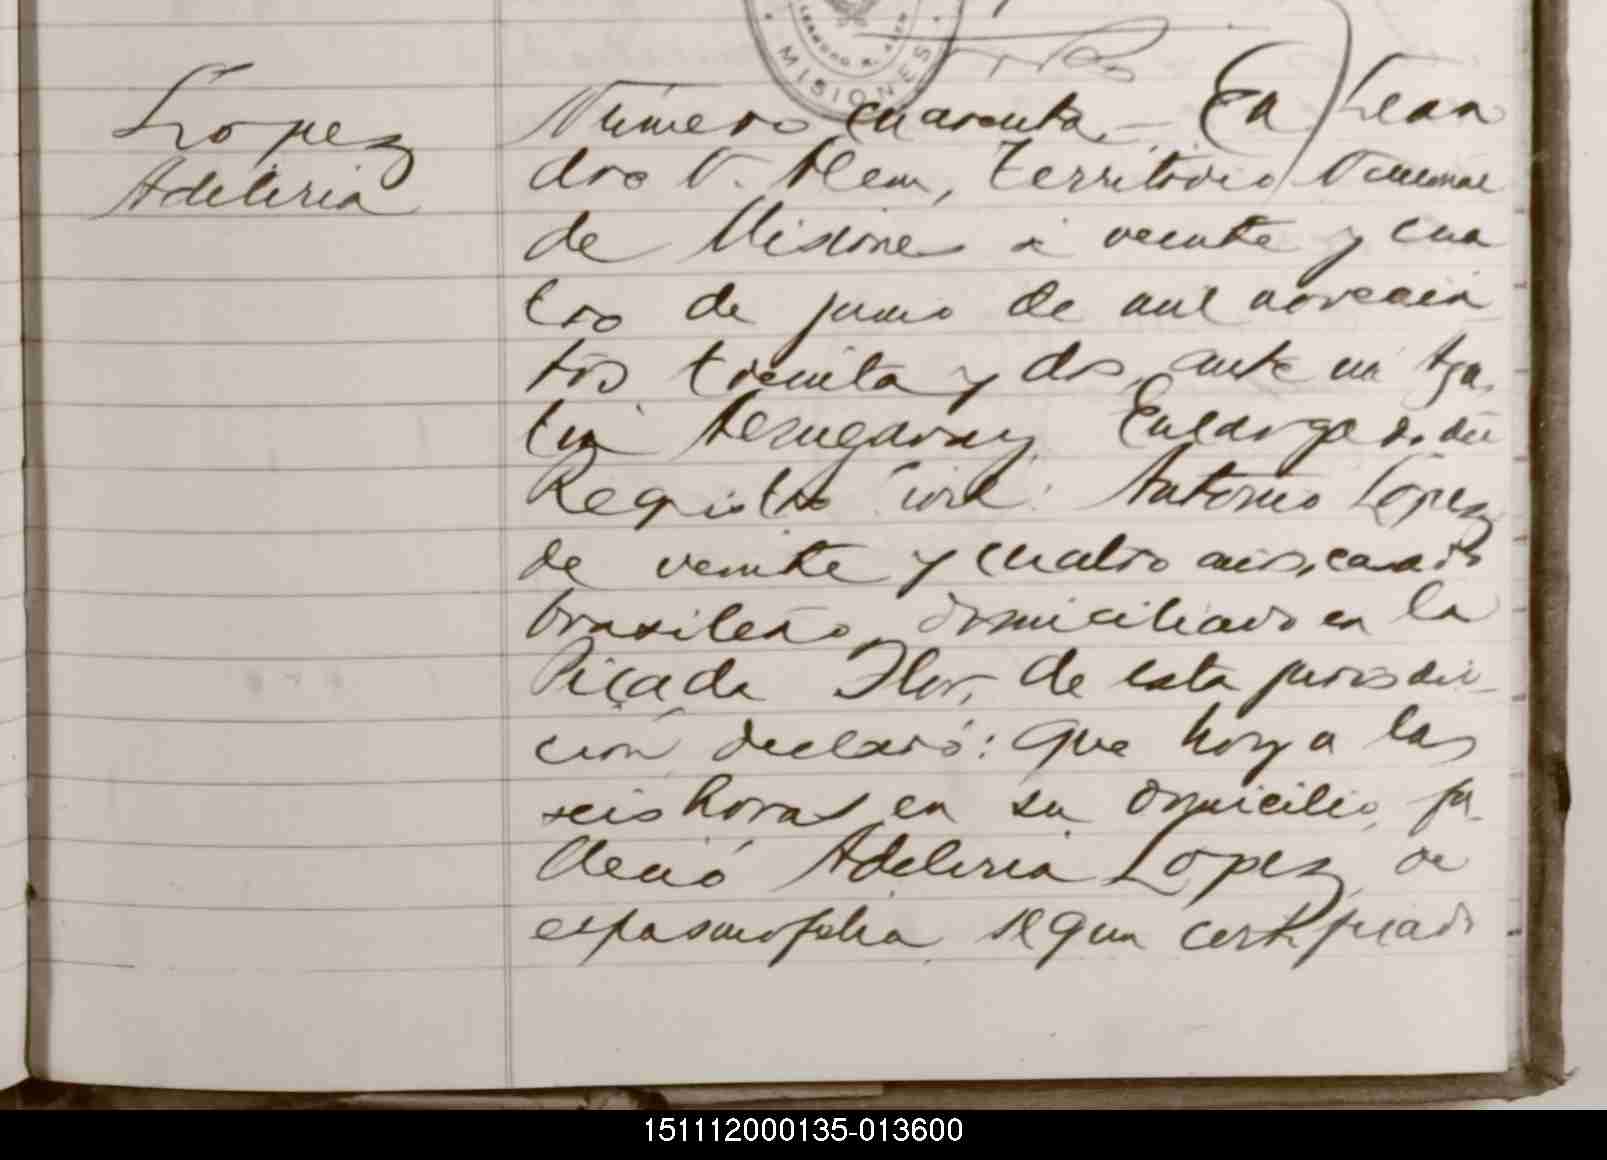 MISIONES
Lopez
Adeliria
Número cuarenta.- En Lean
dro N. Alem, Territorio Nacional
de Misiones a veinte y cua
tro de junio de mil novecien
tos treinta y dos, ante mi Aga
Encargado del
Registro Civil: Antonio López
de veinte y cuatro años, casado
brasileño, domiciliado en la
Picada Flor, de esta jurisdic-
ción declaró: Que hoy a las
seis horas en su domicilio, fa-
lleció Adeliria Lopez, de
espasmofilia, segun certificado
151112000135-013600